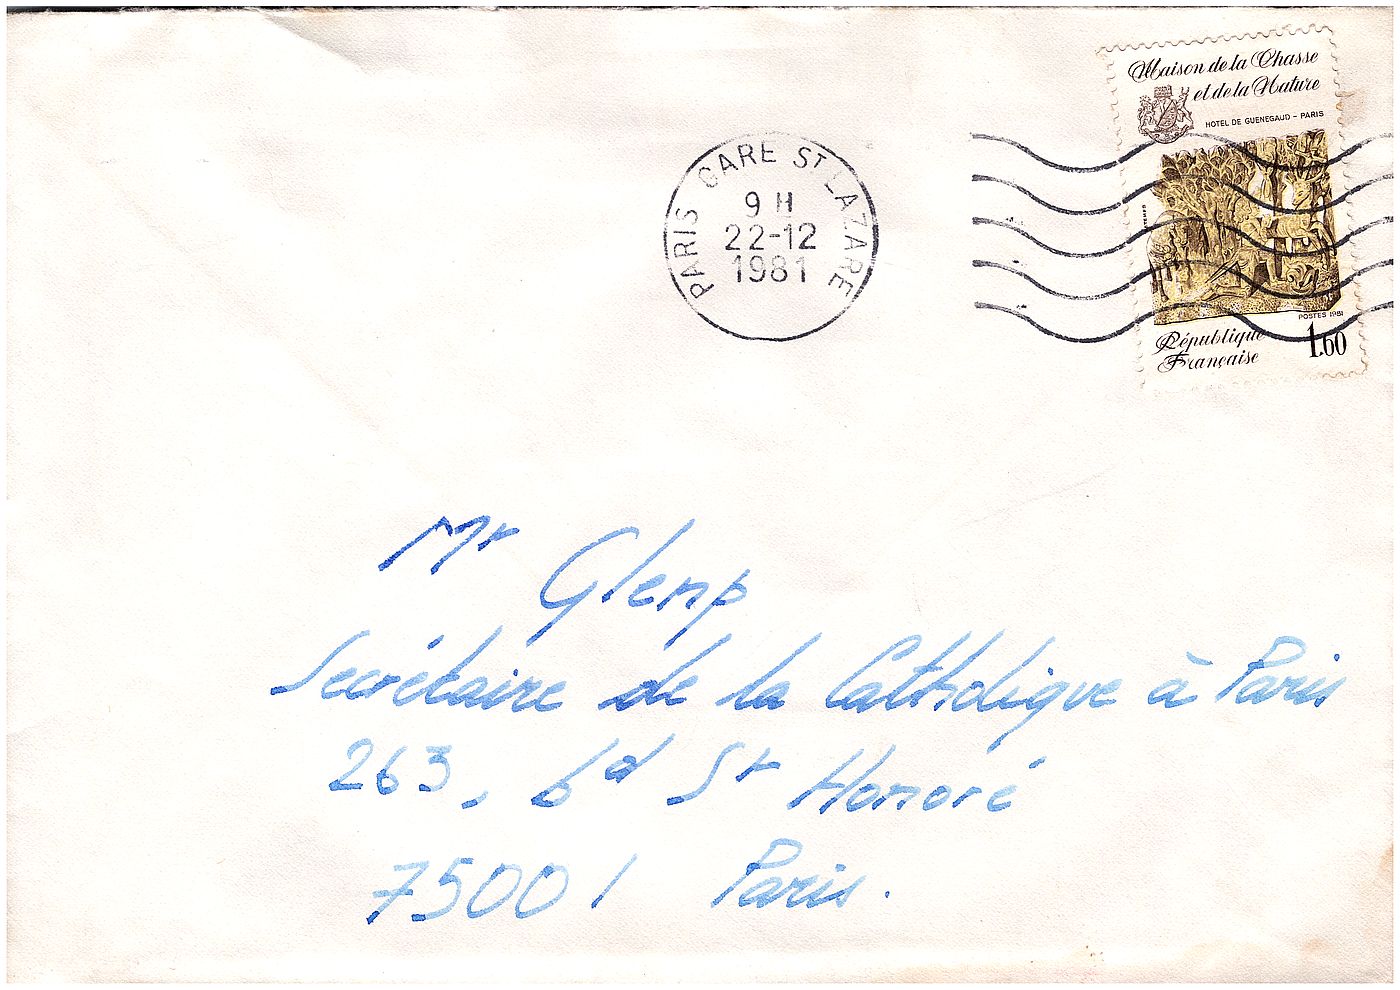 Maison de la Chasse
et de la Nature
HOTEL DE GUENEGAUD - PARIS
POSTES 1981
République
Française
1.60
PARIS GARE ST LAZARE
9 H
22-12
1981
Mr Glemp
Secrétaire de la Catholique à Paris
263, bd St Honoré
75001 Paris.